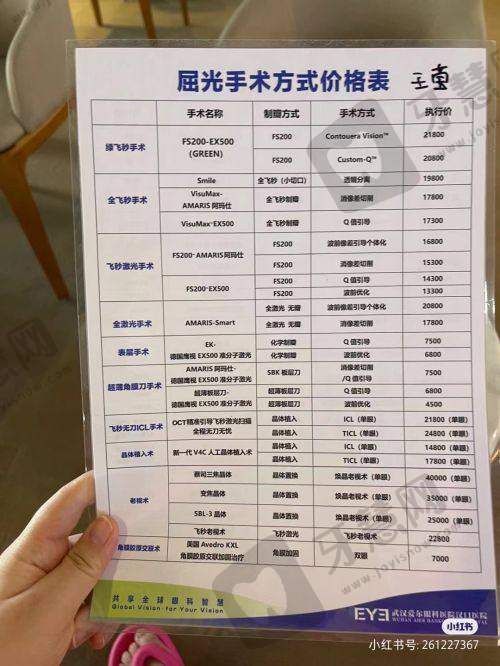 屈光手术方式价格表
手术名称 制瓣方式 手术方式 执行价
绿飞秒手术 FS200-EX500 (GREEN) FS200 Contouera Vision™ 21800
FS200 Custom-Q™ 20800
全飞秒手术 Smile 全飞秒(小切口) 透镜分离 19800
VisuMax-AMARIS 阿玛仕 全飞秒制瓣 消像差切削 17800
VisuMax-EX500 全飞秒制瓣 Q 值引导 17300
飞秒激光手术 FS200-AMARIS阿玛仕 FS200 波前像差引导个体化 16800
FS200 消像差切削 15300
FS200-EX500 FS200 Q 值引导 14300
FS200 波前优化 13300
全激光手术 AMARIS-Smart 全激光 无瓣 波前像差引导个体化 20800
全激光 无瓣 消像差切削 17800
表层手术 EK-德国鹰视 EX500 准分子激光 化学制瓣 Q 值引导 7500
化学制瓣 波前优化 6800
超薄角膜刀手术 AMARIS 阿玛仕-德国鹰视 EX500 准分子激光 SBK 板层刀 消像差切削/Q 值引导 7500
超薄板层刀-德国鹰视 EX500 准分子激光 超薄板层刀 Q 值引导 6800
超薄板层刀 波前优化 4500
飞秒无刀ICL手术 OCT精准引导飞秒激光扫描 全程无刀无忧 晶体植入 ICL(单眼) 21800(单眼)
晶体植入 TICL(单眼) 24800(单眼)
晶体植入术 新一代 V4C 人工晶体植入术 晶体植入 ICL(单眼) 14800(单眼)
晶体植入 TICL(单眼) 17800(单眼)
老视术 蔡司三焦晶体 晶体置换 焕晶老视术(单眼) 40000(单眼)
变焦晶体 晶体置换 焕晶老视术(单眼) 35000(单眼)
SBL-3 晶体 晶体置换 焕晶老视术(单眼) 25000(单眼)
飞秒老视术 飞秒激光 飞秒老视术 22800
角膜胶原交联术 美国 Avedro KXL 角膜胶原交联加固治疗 角膜加固 双眼 7000
共享全球眼科智慧
Global Vision for Your Vision
EYE 武汉爱尔眼科医院汉口医院
牙慧网
牙慧网
www.joyisnoon.com
小红书
小红书号: 261227367